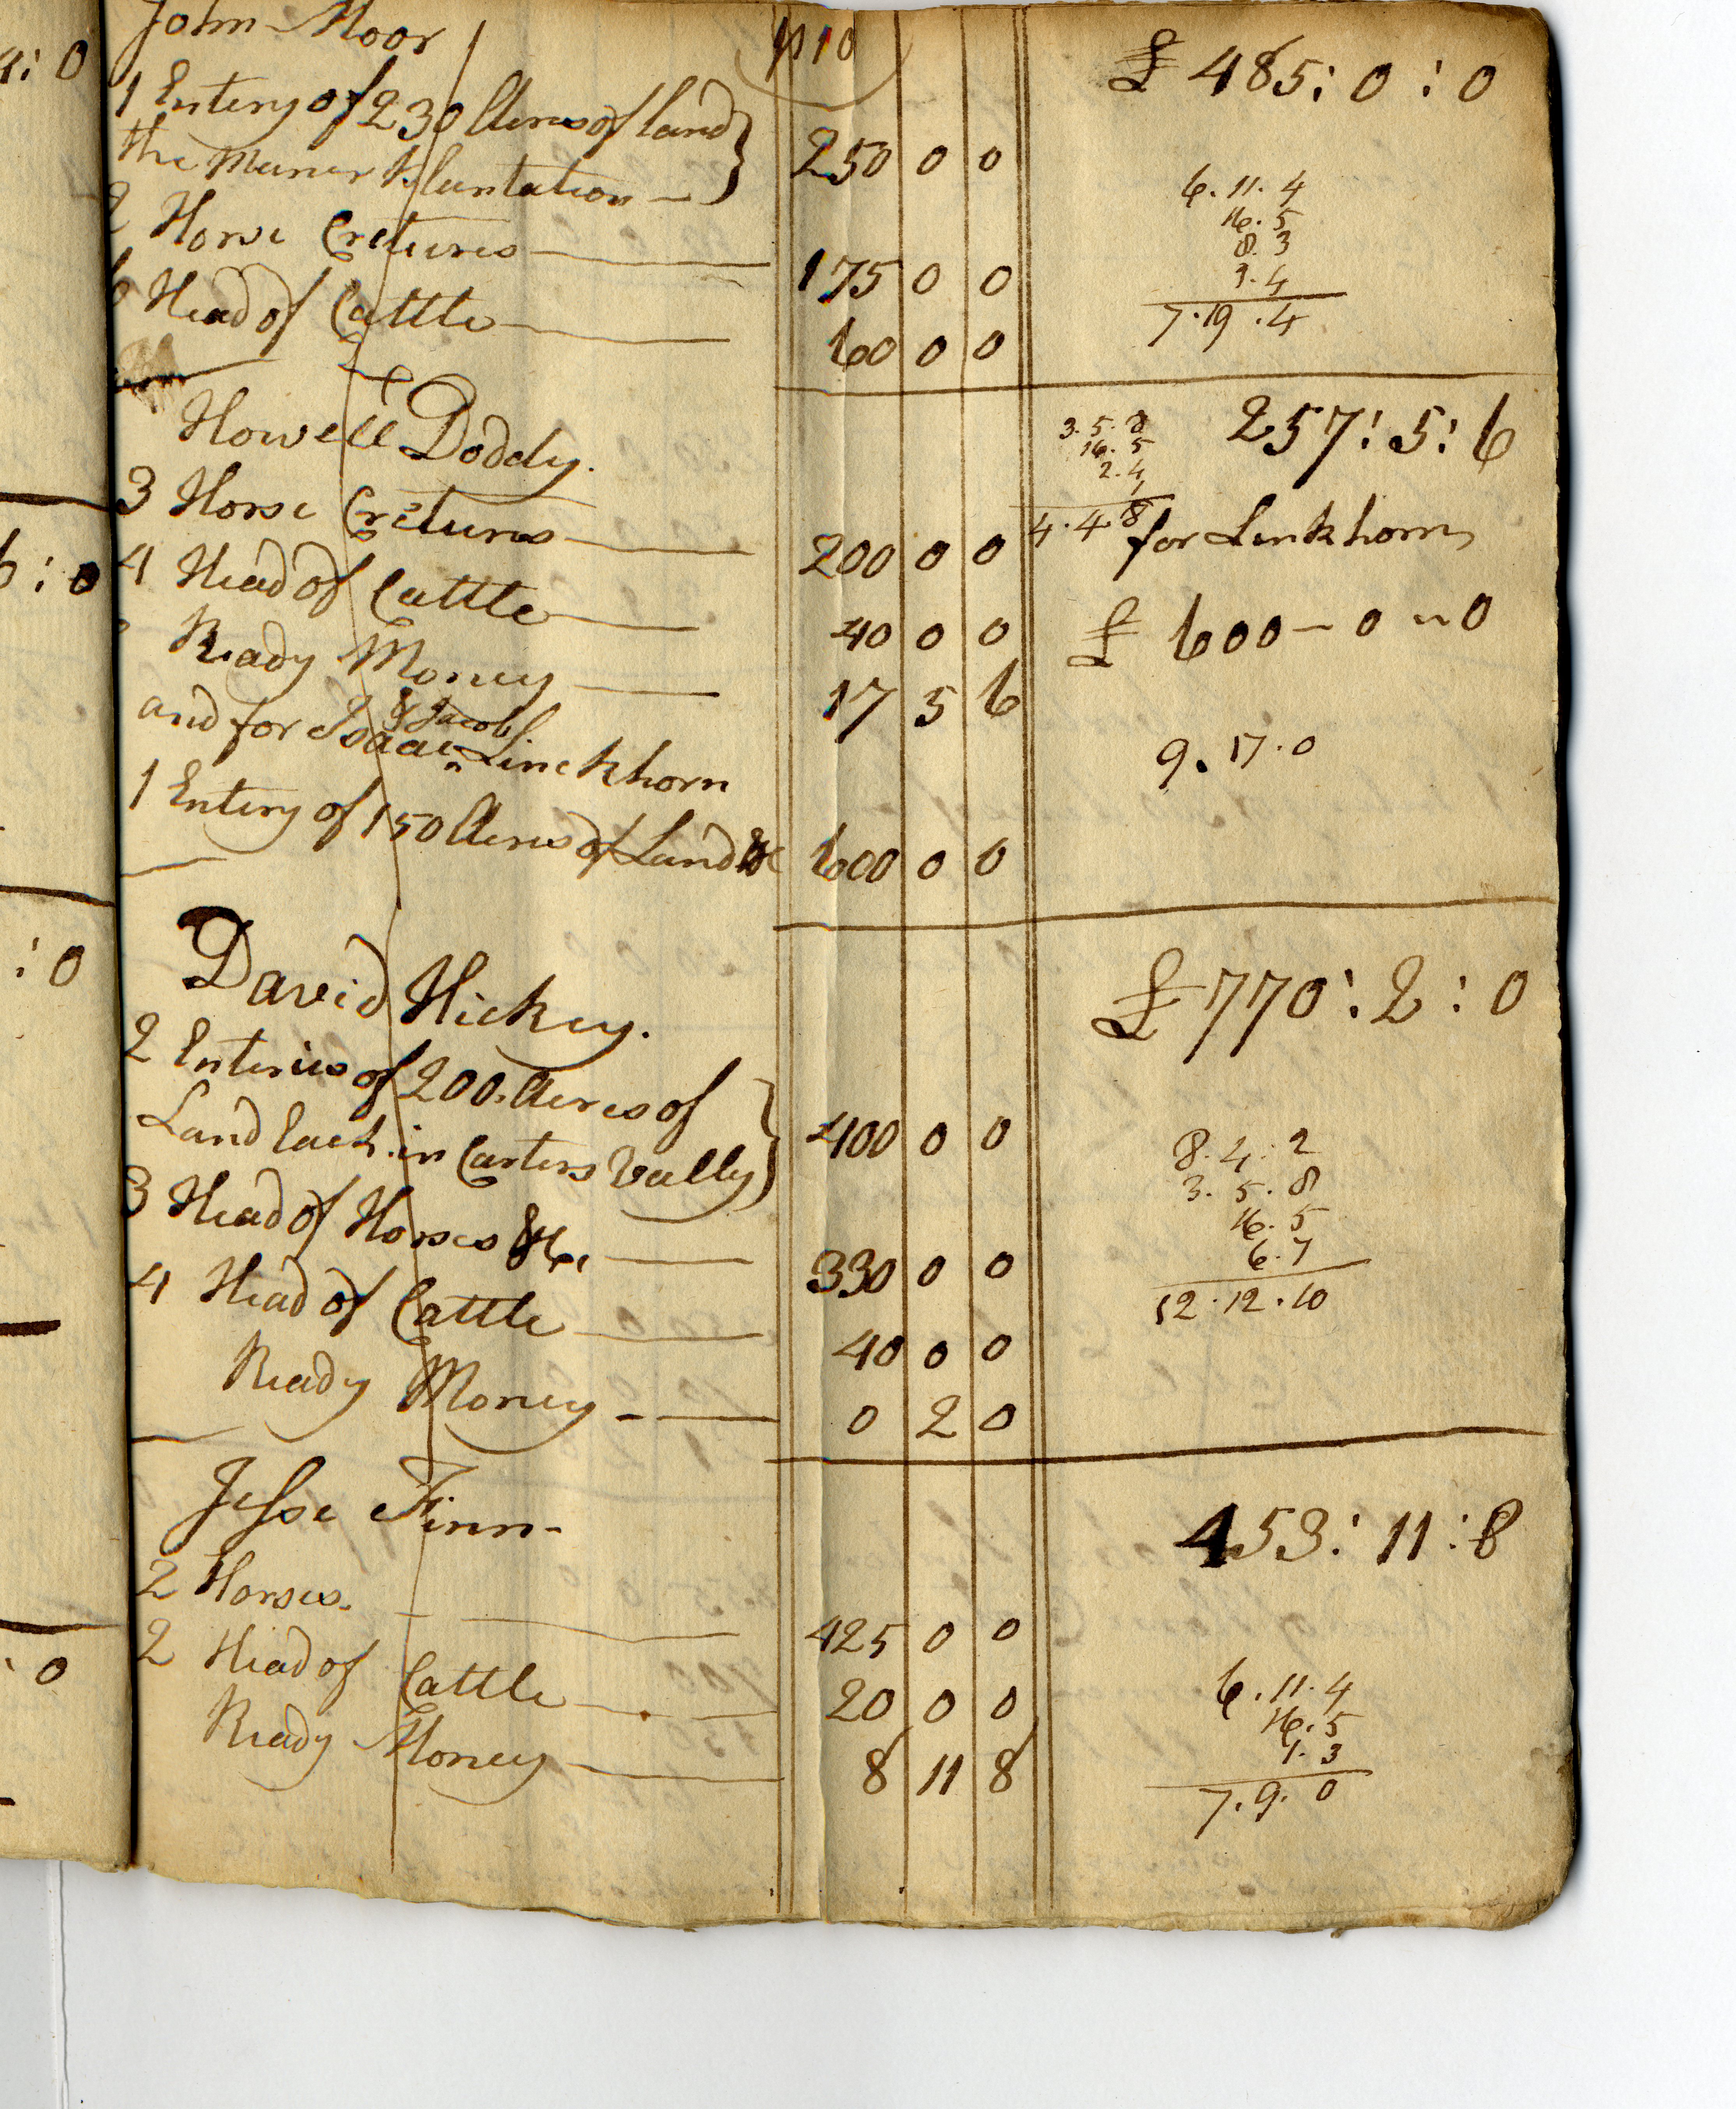 4: 0
6: 0
: 0
: 0
p 10
John Moor £ 485: 0 : 0
1 Entery of 230 Acres of land
the Maner Plantation — 250 0 0
2 Horse Cretures 175 0 0
6 Head of Cattle 60 0 0
6. 11. 4
16. 5
8. 3
3. 4
7. 19 . 4
Howell Doddy. 257: 5: 6
3 Horse Cretures 200 0 0
4 Head of Cattle 40 0 0
Ready Money 17 5 6
3. 5. 8
16. 5
2. 4
4. 4. 8
for Linkhorn
£ 600 - 0 - 0
& Jacob
and for Isaac ^ Linckhorn
1 Entery of 150 Acres of Land &c 600 0 0
9. 17. 0
David Hickey. £ 770: 2 : 0
2 Enteries of 200 Acres of
Land Each in Carters Vally 400 0 0
3 Head of Horses &c 330 0 0
4 Head of Cattle 40 0 0
Ready Money 0 2 0
8. 4. 2
3. 5. 8
16. 5
6. 7
12. 12. 10
Jesse Finn 453: 11: 8
2 Horses. 425 0 0
2 Head of Cattle 20 0 0
Ready Money 8 11 8
6. 11. 4
16. 5
1. 3
7. 9. 0